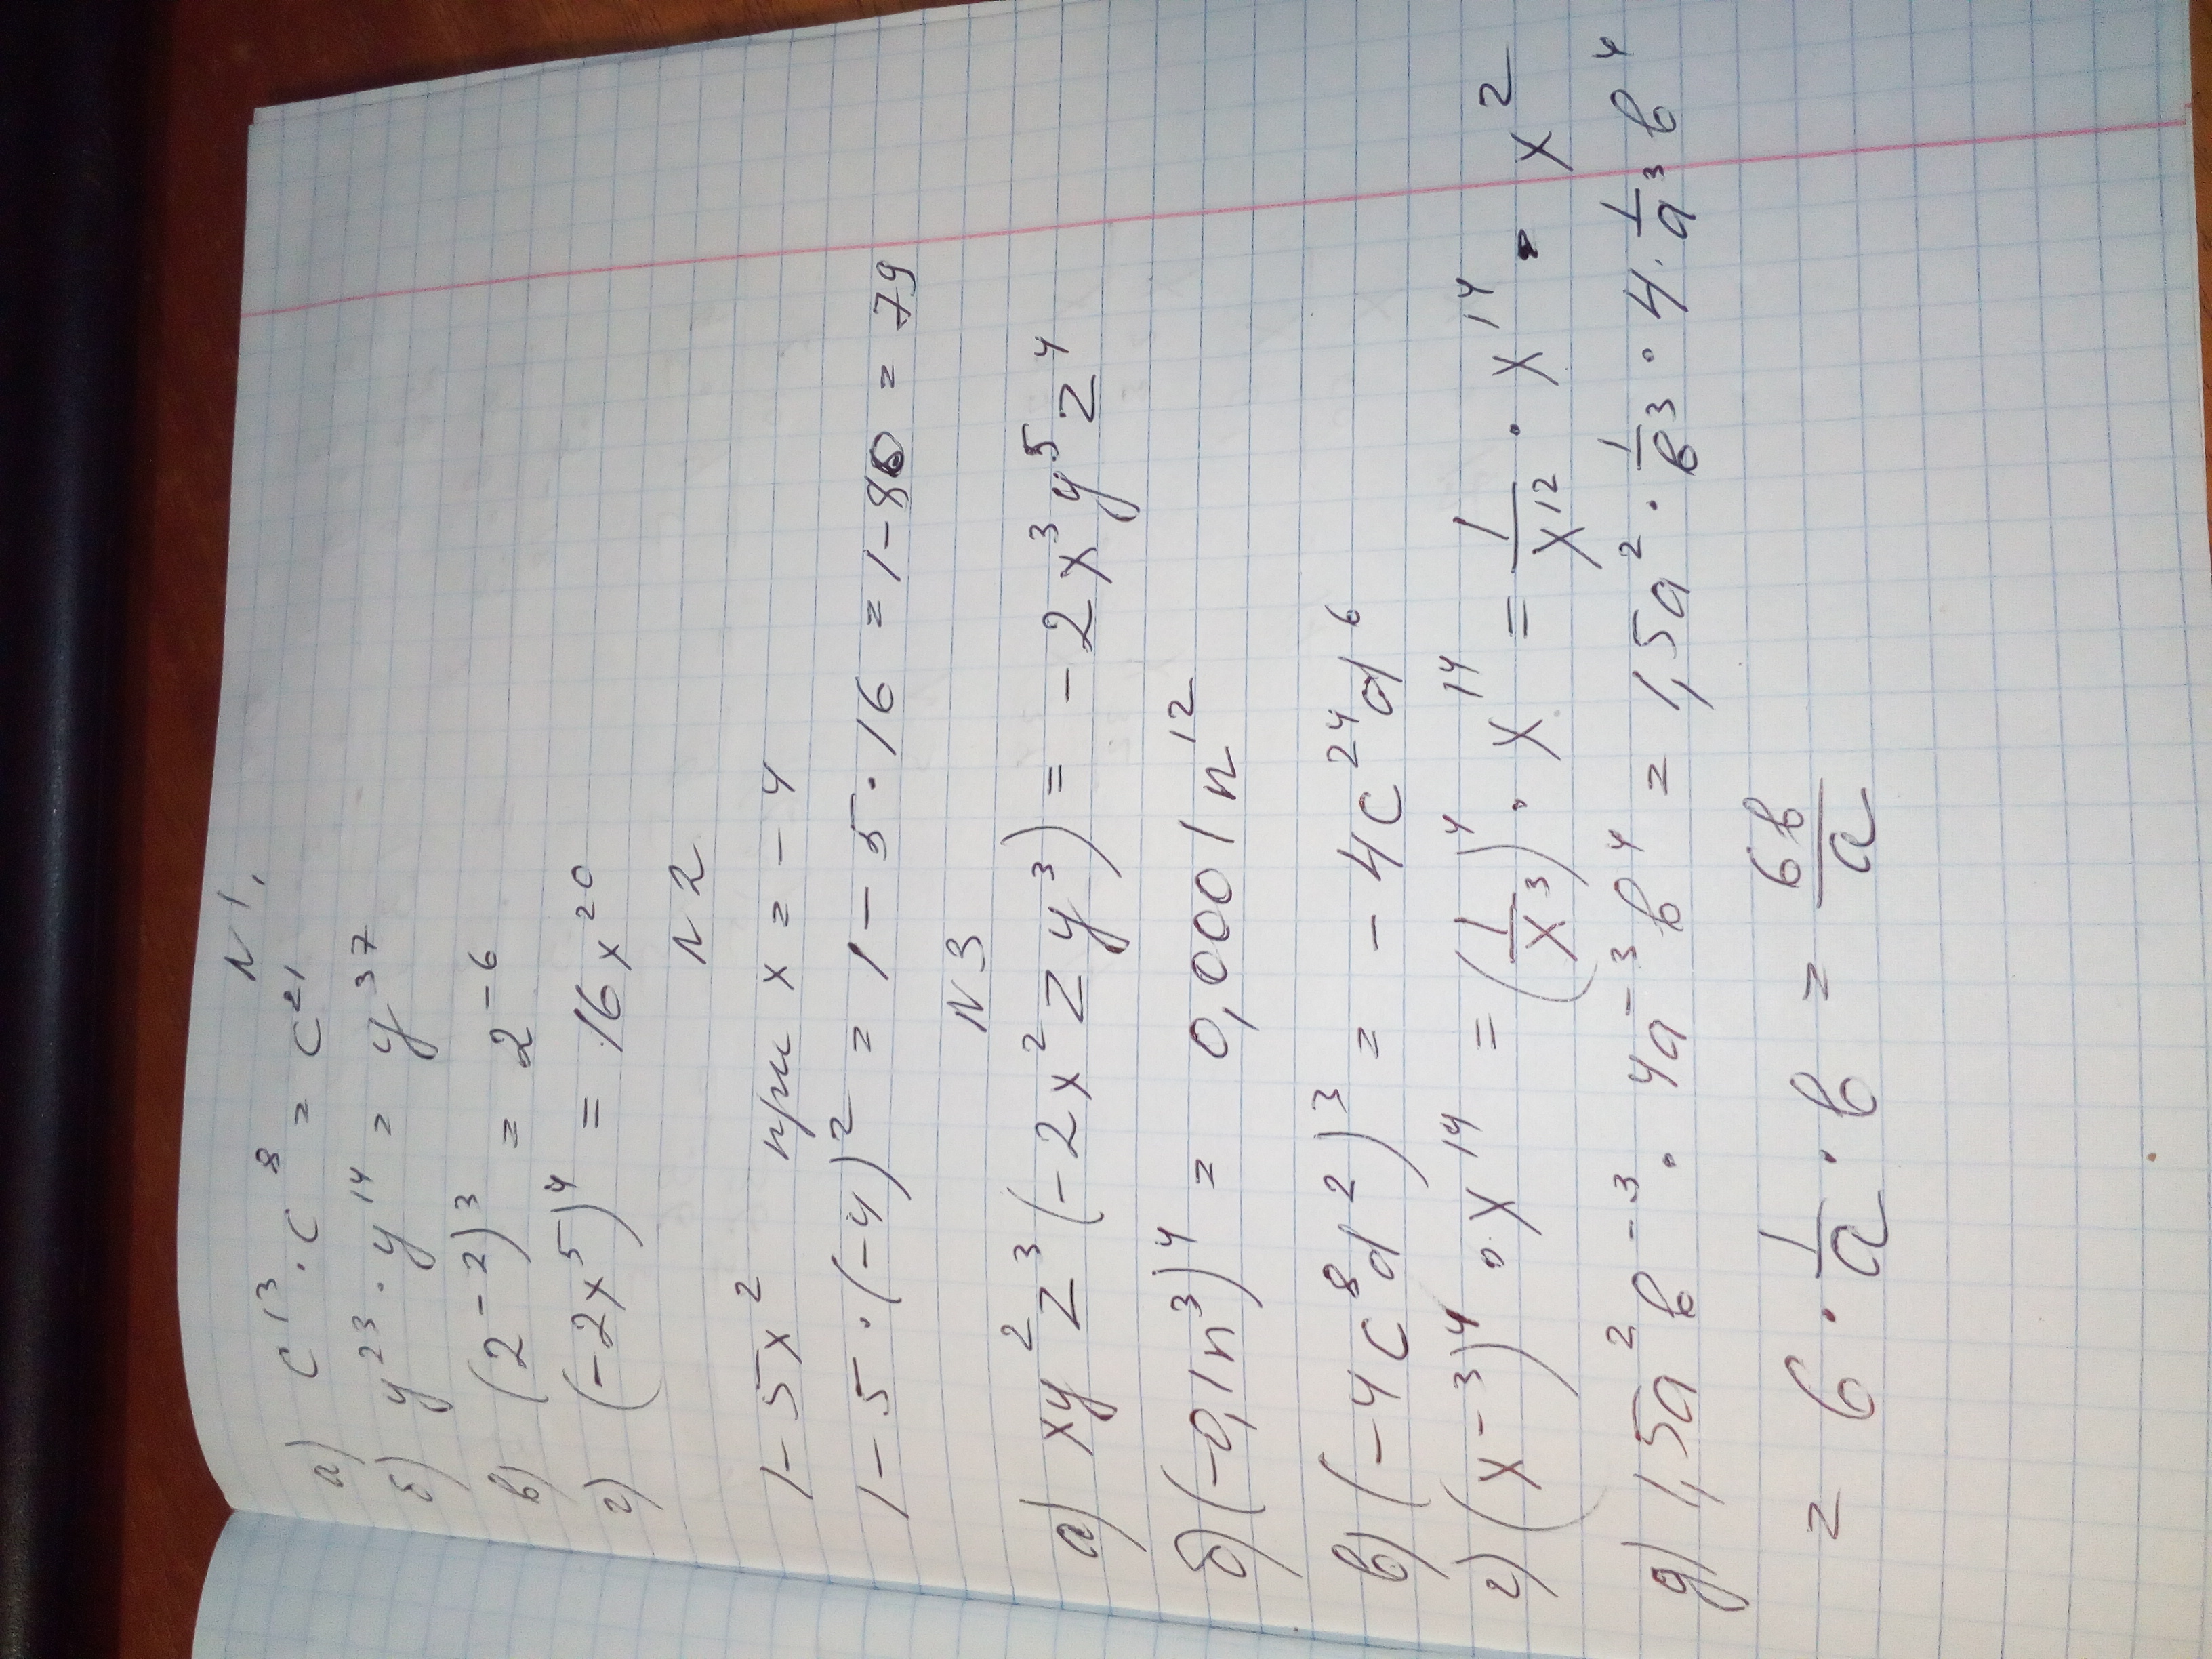 N 1.
а) c¹³ · c⁸ = c²¹
б) y²³ · y¹⁴ = y³⁷
в) (2⁻²)³ = 2⁻⁶
г) (-2x⁵)⁴ = 16x²⁰
N 2
1 - 5x² при x = -4
1 - 5 · (-4)² = 1 - 5 · 16 = 1 - 80 = 79
N 3
а) xy²z³(-2x²zy³) = -2x³y⁵z⁴
б) (-0,1n³)⁴ = 0,0001n¹²
в) (-4c⁸d²)³ = -4c²⁴d⁶
г) (x⁻³)⁴ · x¹⁴ = (1/x³)⁴ · x¹⁴ = 1/x¹² · x¹⁴ · x²
д) 1,5a²b⁻³ · 4a⁻³b⁴ = 1,5a² · 1/b³ · 4 · 1/a³ b⁴
= 6 · 1/a · b = 6b/a